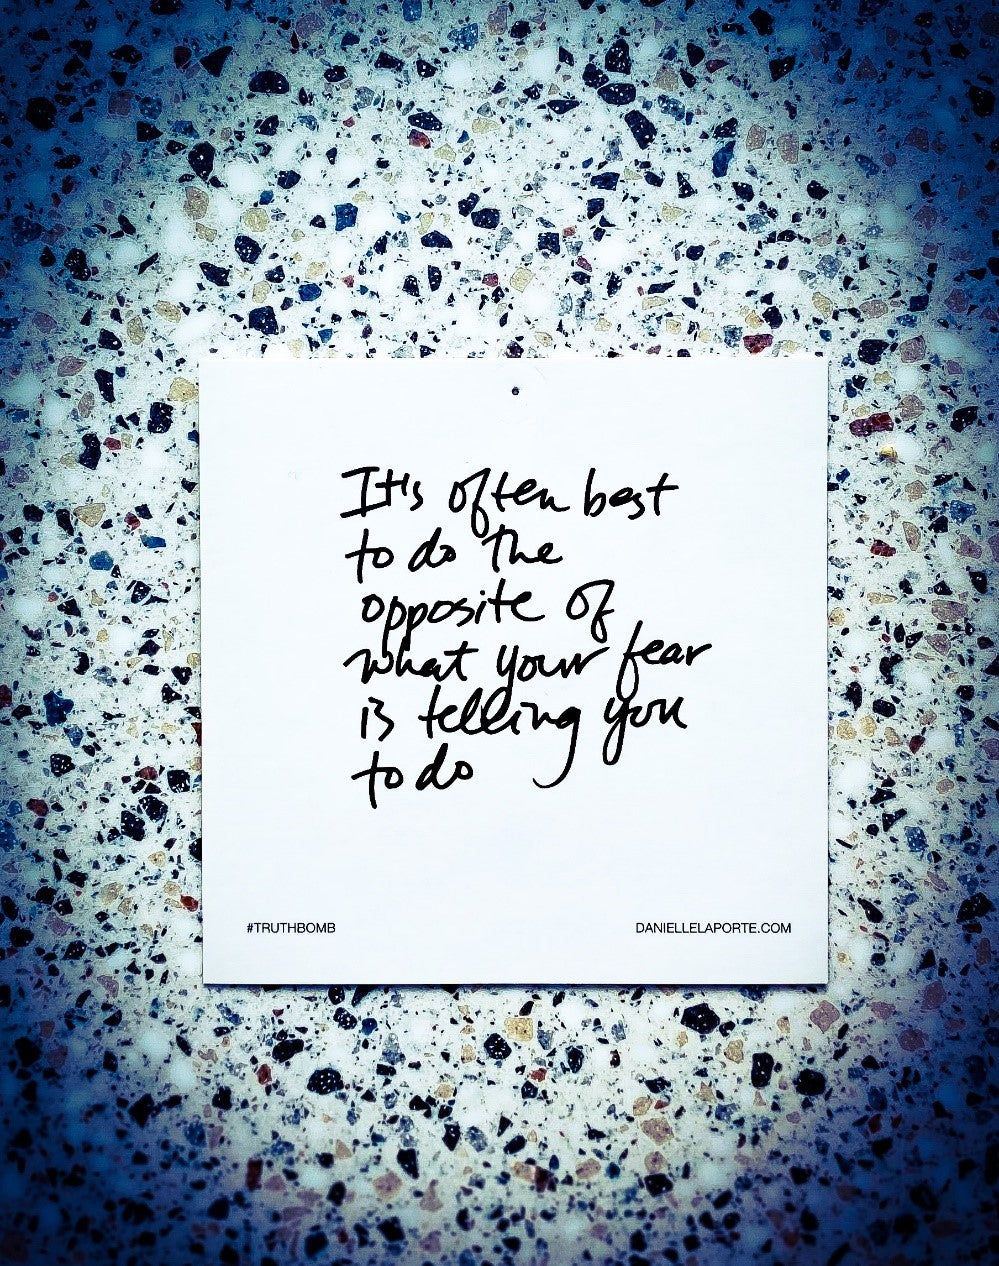 It's often best
to do the
opposite of
what your fear
is telling you
to do
#TRUTHBOMB
DANIELLELAPORTE.COM